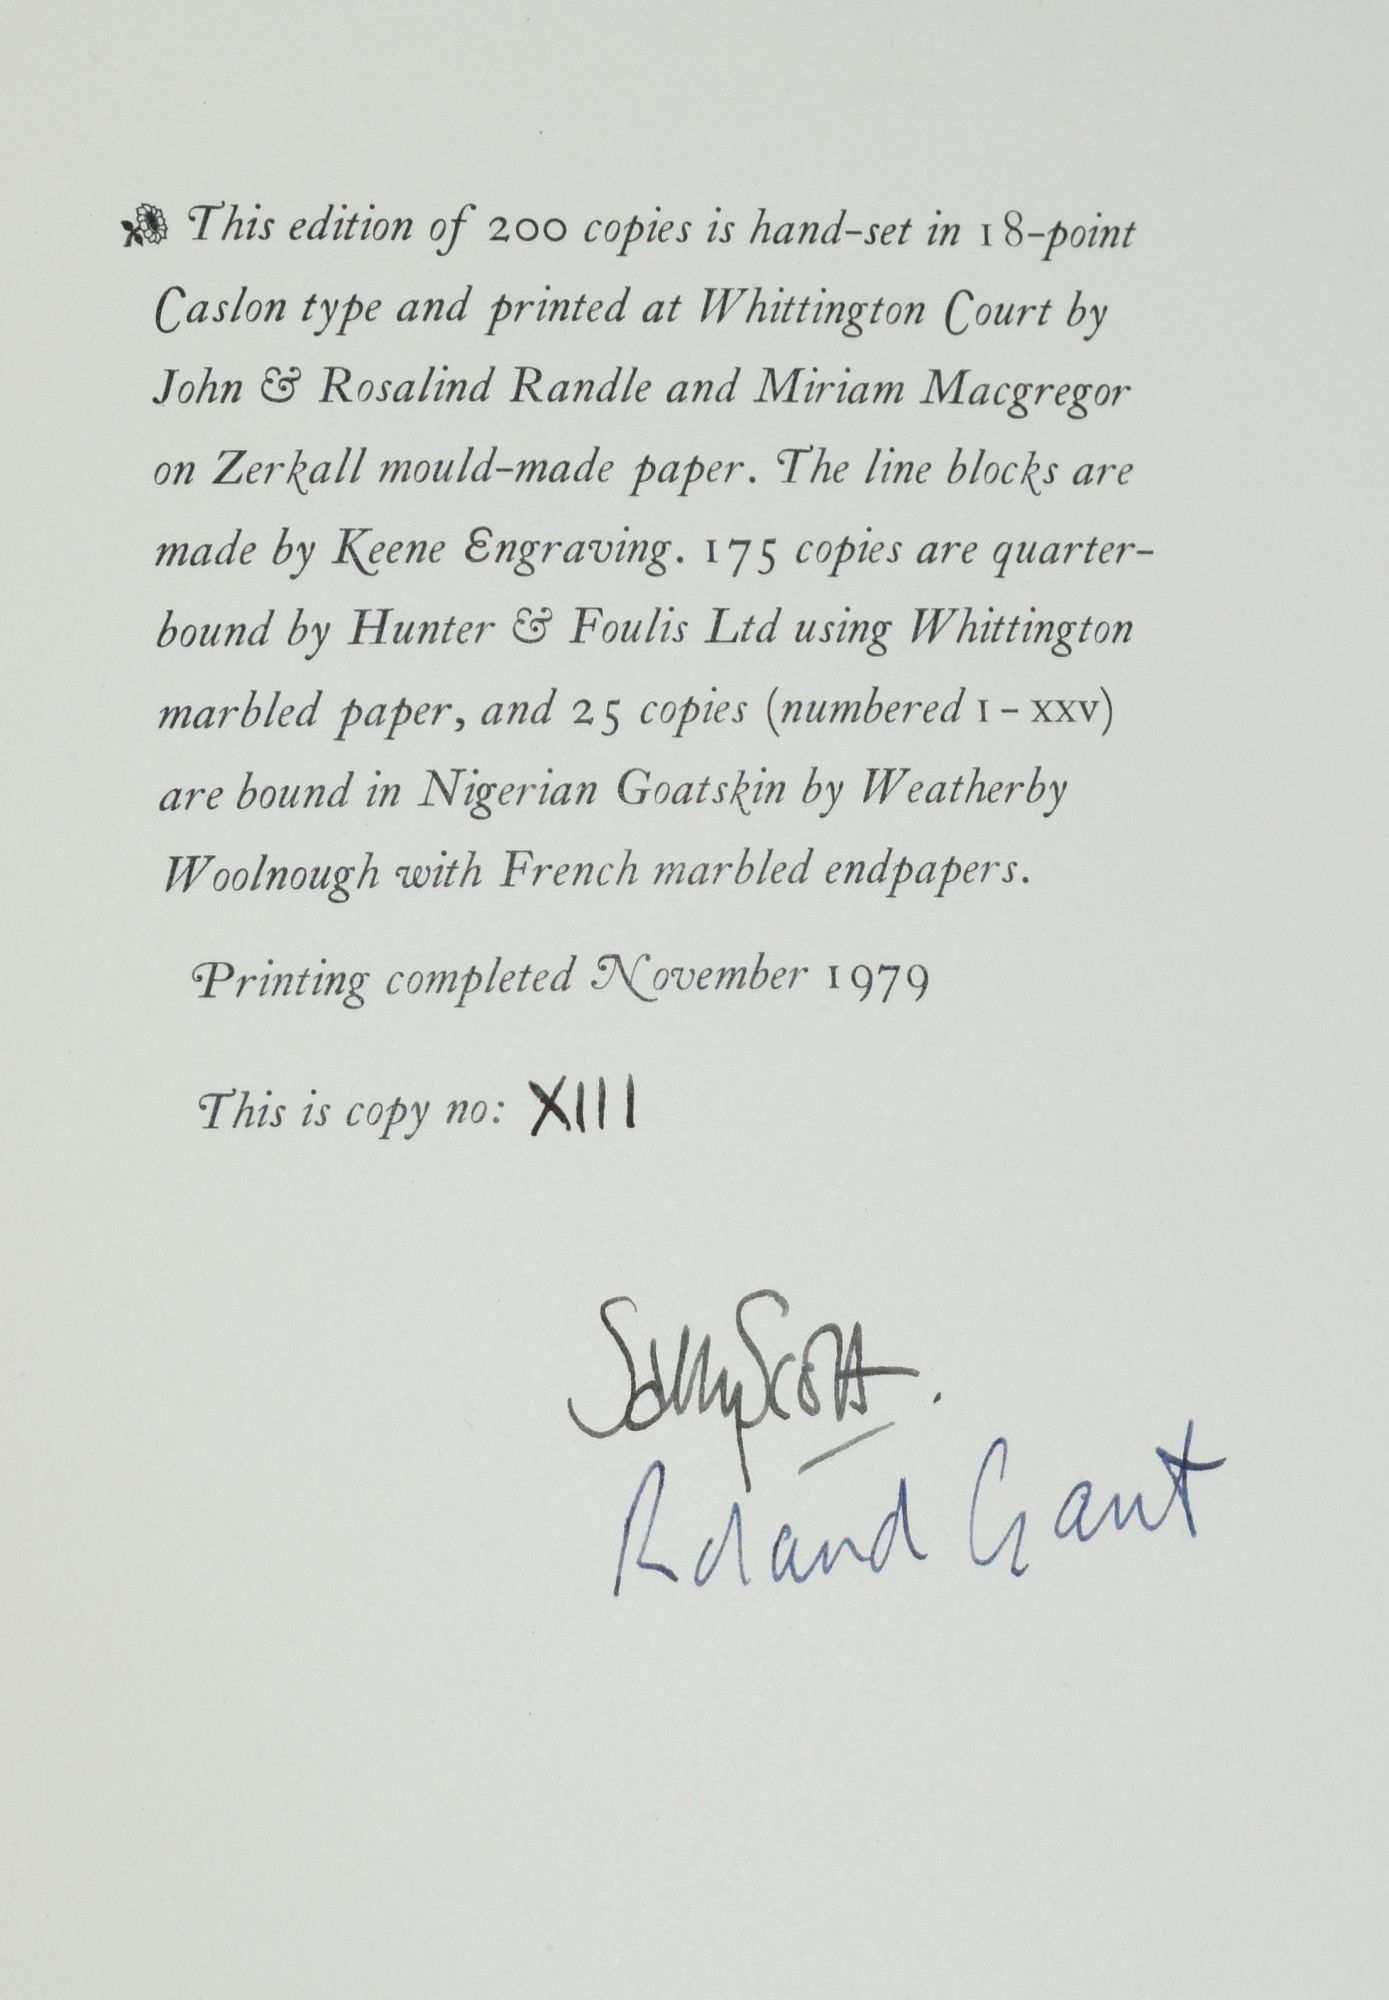 This edition of 200 copies is hand-set in 18-point
Caslon type and printed at Whittington Court by
John & Rosalind Randle and Miriam Macgregor
on Zerkall mould-made paper. The line blocks are
made by Keene Engraving. 175 copies are quarter-
bound by Hunter & Foulis Ltd using Whittington
marbled paper, and 25 copies (numbered I - XXV)
are bound in Nigerian Goatskin by Weatherby
Woolnough with French marbled endpapers.
Printing completed November 1979
This is copy no: XIII
Sally Scott.
Roland Gant